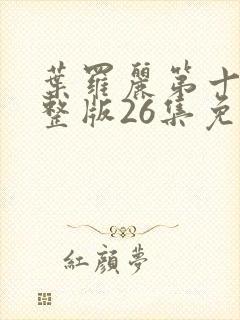 葉羅麗第十
整版26集免
紅顏夢